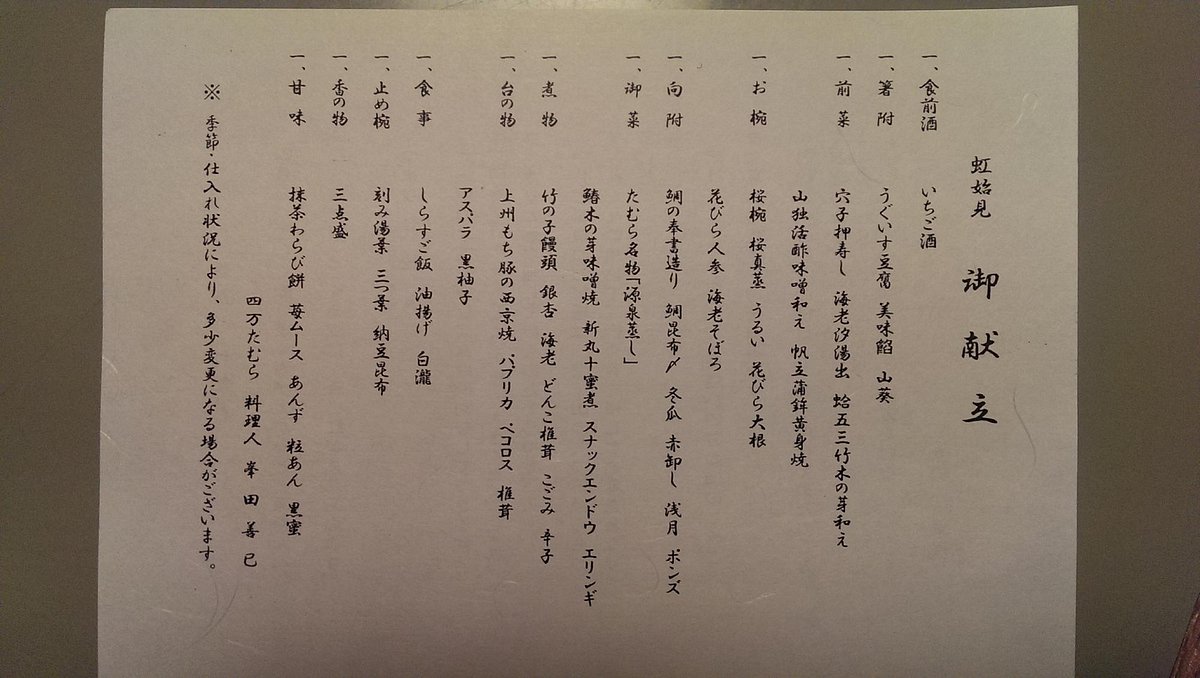 虹始見 御献立
一、食前酒 いちご酒
一、箸附 うぐいす豆腐 美味餡 山葵
一、前菜 穴子押寿し 海老汐湯出 蛤五三竹木の芽和え
山独活酢味噌和え 帆立蒲鉾黄身焼
一、お椀 桜椀 桜真蒸 うるい 花びら大根
花びら人参 海老そぼろ
一、向附 鯛の奉書造り 鯛昆布〆 冬瓜 赤卸し 浅月 ポンズ
一、御菜 たむら名物「源泉蒸し」
鰆木の芽味噌焼 新丸十蜜煮 スナックエンドウ エリンギ
一、煮物 竹の子饅頭 銀杏 海老 どんこ椎茸 こごみ 辛子
一、台の物 上州もち豚の西京焼 パプリカ ペコロス 椎茸
アスパラ 黒柚子
一、食事 しらすご飯 油揚げ 白瀧
一、止め椀 刻み湯葉 三つ葉 納豆昆布
一、香の物 三点盛
一、甘味 抹茶わらび餅 苺ムース あんず 粒あん 黒蜜
四万たむら 料理人 峯田善巳
※ 季節・仕入れ状況により、多少変更になる場合がございます。